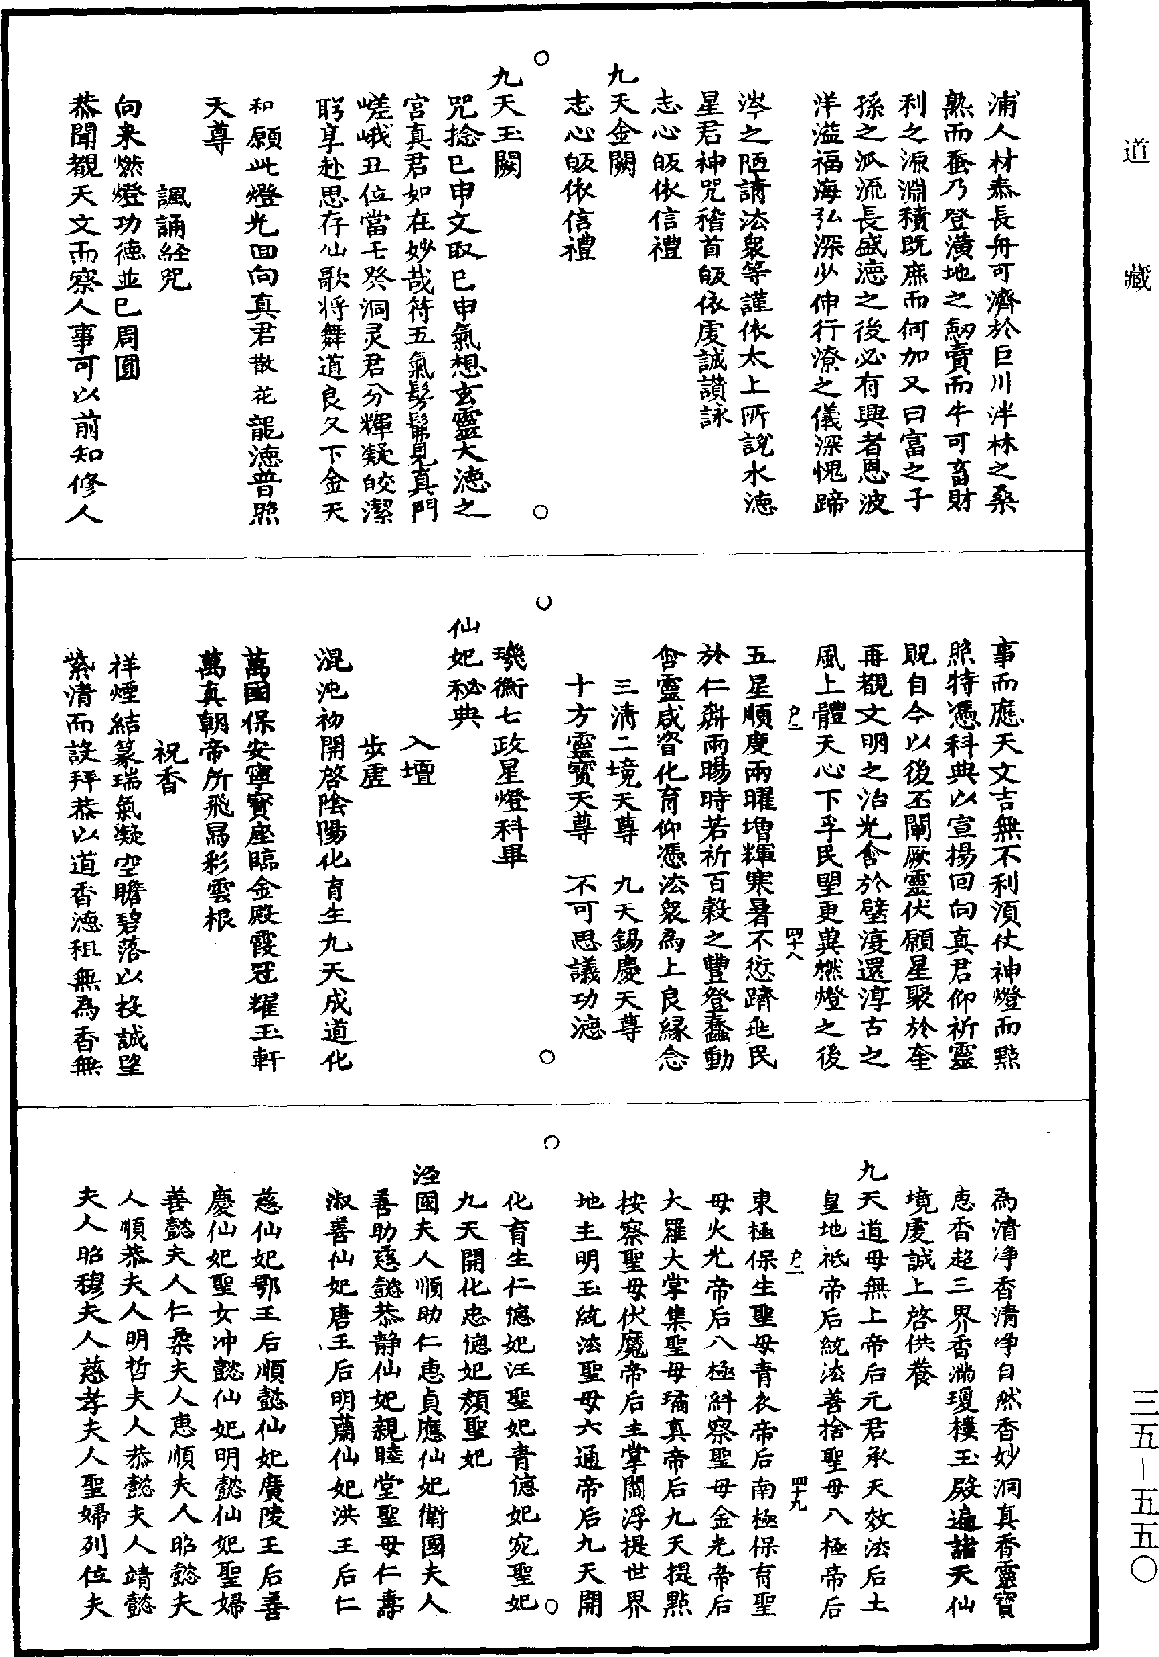 道藏
浦人材泰長舟可濟於巨川泮林之桑
熟而蚕乃登潢地之劒賣而牛可畜財
利之源淵積既庶而何加又曰富之子
孫之派流長盛德之後必有興者恩波
洋溢福海弘深少伸行潦之儀深愧蹄
涔之陋請法衆等謹依太上所說水德
星君神咒稽首皈依虔誠讚詠
志心皈依信禮
九天金闕
志心皈依信禮
九天玉闕
咒捻巳申文取巳申氣想玄靈大德之
宮真君如在妙哉符五氣髣髴見真門
嵯峨丑位當壬癸洞灵君分輝凝皎潔
盻享赴思存仙歌将舞道良久下金天
和願此燈光回向真君散花龍德普照
天尊
諷誦経咒
向来燃燈功德並已周圓
恭聞觀天文而察人事可以前知修人
事而應天文吉無不利須仗神燈而點
照特憑科典以宣揚回向真君仰祈靈
貺自今以後丕闡厥靈伏願星聚於奎
再覩文明之治光含於璧復還淳古之
風上體天心下孚民望更兾燃燈之後
四十八
五星順度兩曜增輝寒暑不愆躋兆民
於仁壽雨暘時若祈百穀之豐登蠢動
含靈咸資化育仰憑法衆為上良緣念
三清二境天尊　九天錫慶天尊
十方靈寶天尊　不可思議功德
璣衡七政星燈科畢
仙妃秘典
入壇
步虛
混沌初開啓陰陽化育生九天成道化
萬國保安寧寶座臨金殿霞冠耀玉軒
萬真朝帝所飛舄彩雲根
祝香
祥煙結篆瑞氣凝空瞻碧落以投誠望
紫清而設拜恭以道香德租無為香無
為清淨香清淨自然香妙洞真香靈寶
惠香超三界香滿瓊樓玉殿遍諸天仙
境虔誠上啓供養
九天道母無上帝后元君承天效法后土
皇地祇帝后統法善捨聖母八極帝后
四十九
東極保生聖母青衣帝后南極保育聖
母火光帝后八極糾察聖母金光帝后
大羅大掌集聖母璚真帝后九天提點
按察聖母伏魔帝后主掌閻浮提世界
地主明玉統法聖母六通帝后九天開
化育生仁德妃汪聖妃青德妃宛聖妃
九天開化忠德妃顏聖妃
涇國夫人順助仁惠貞應仙妃衛國夫人
善助慈懿恭静仙妃親睦堂聖母仁壽
淑善仙妃唐王后明蘭仙妃洪王后仁
慈仙妃鄂王后順懿仙妃廣陵王后善
慶仙妃聖女冲懿仙妃明懿仙妃聖婦
善懿夫人仁柔夫人惠順夫人昭懿夫
人順恭夫人明哲夫人恭懿夫人靖懿
夫人昭穆夫人慈孝夫人聖婦列位夫
三五－五五〇